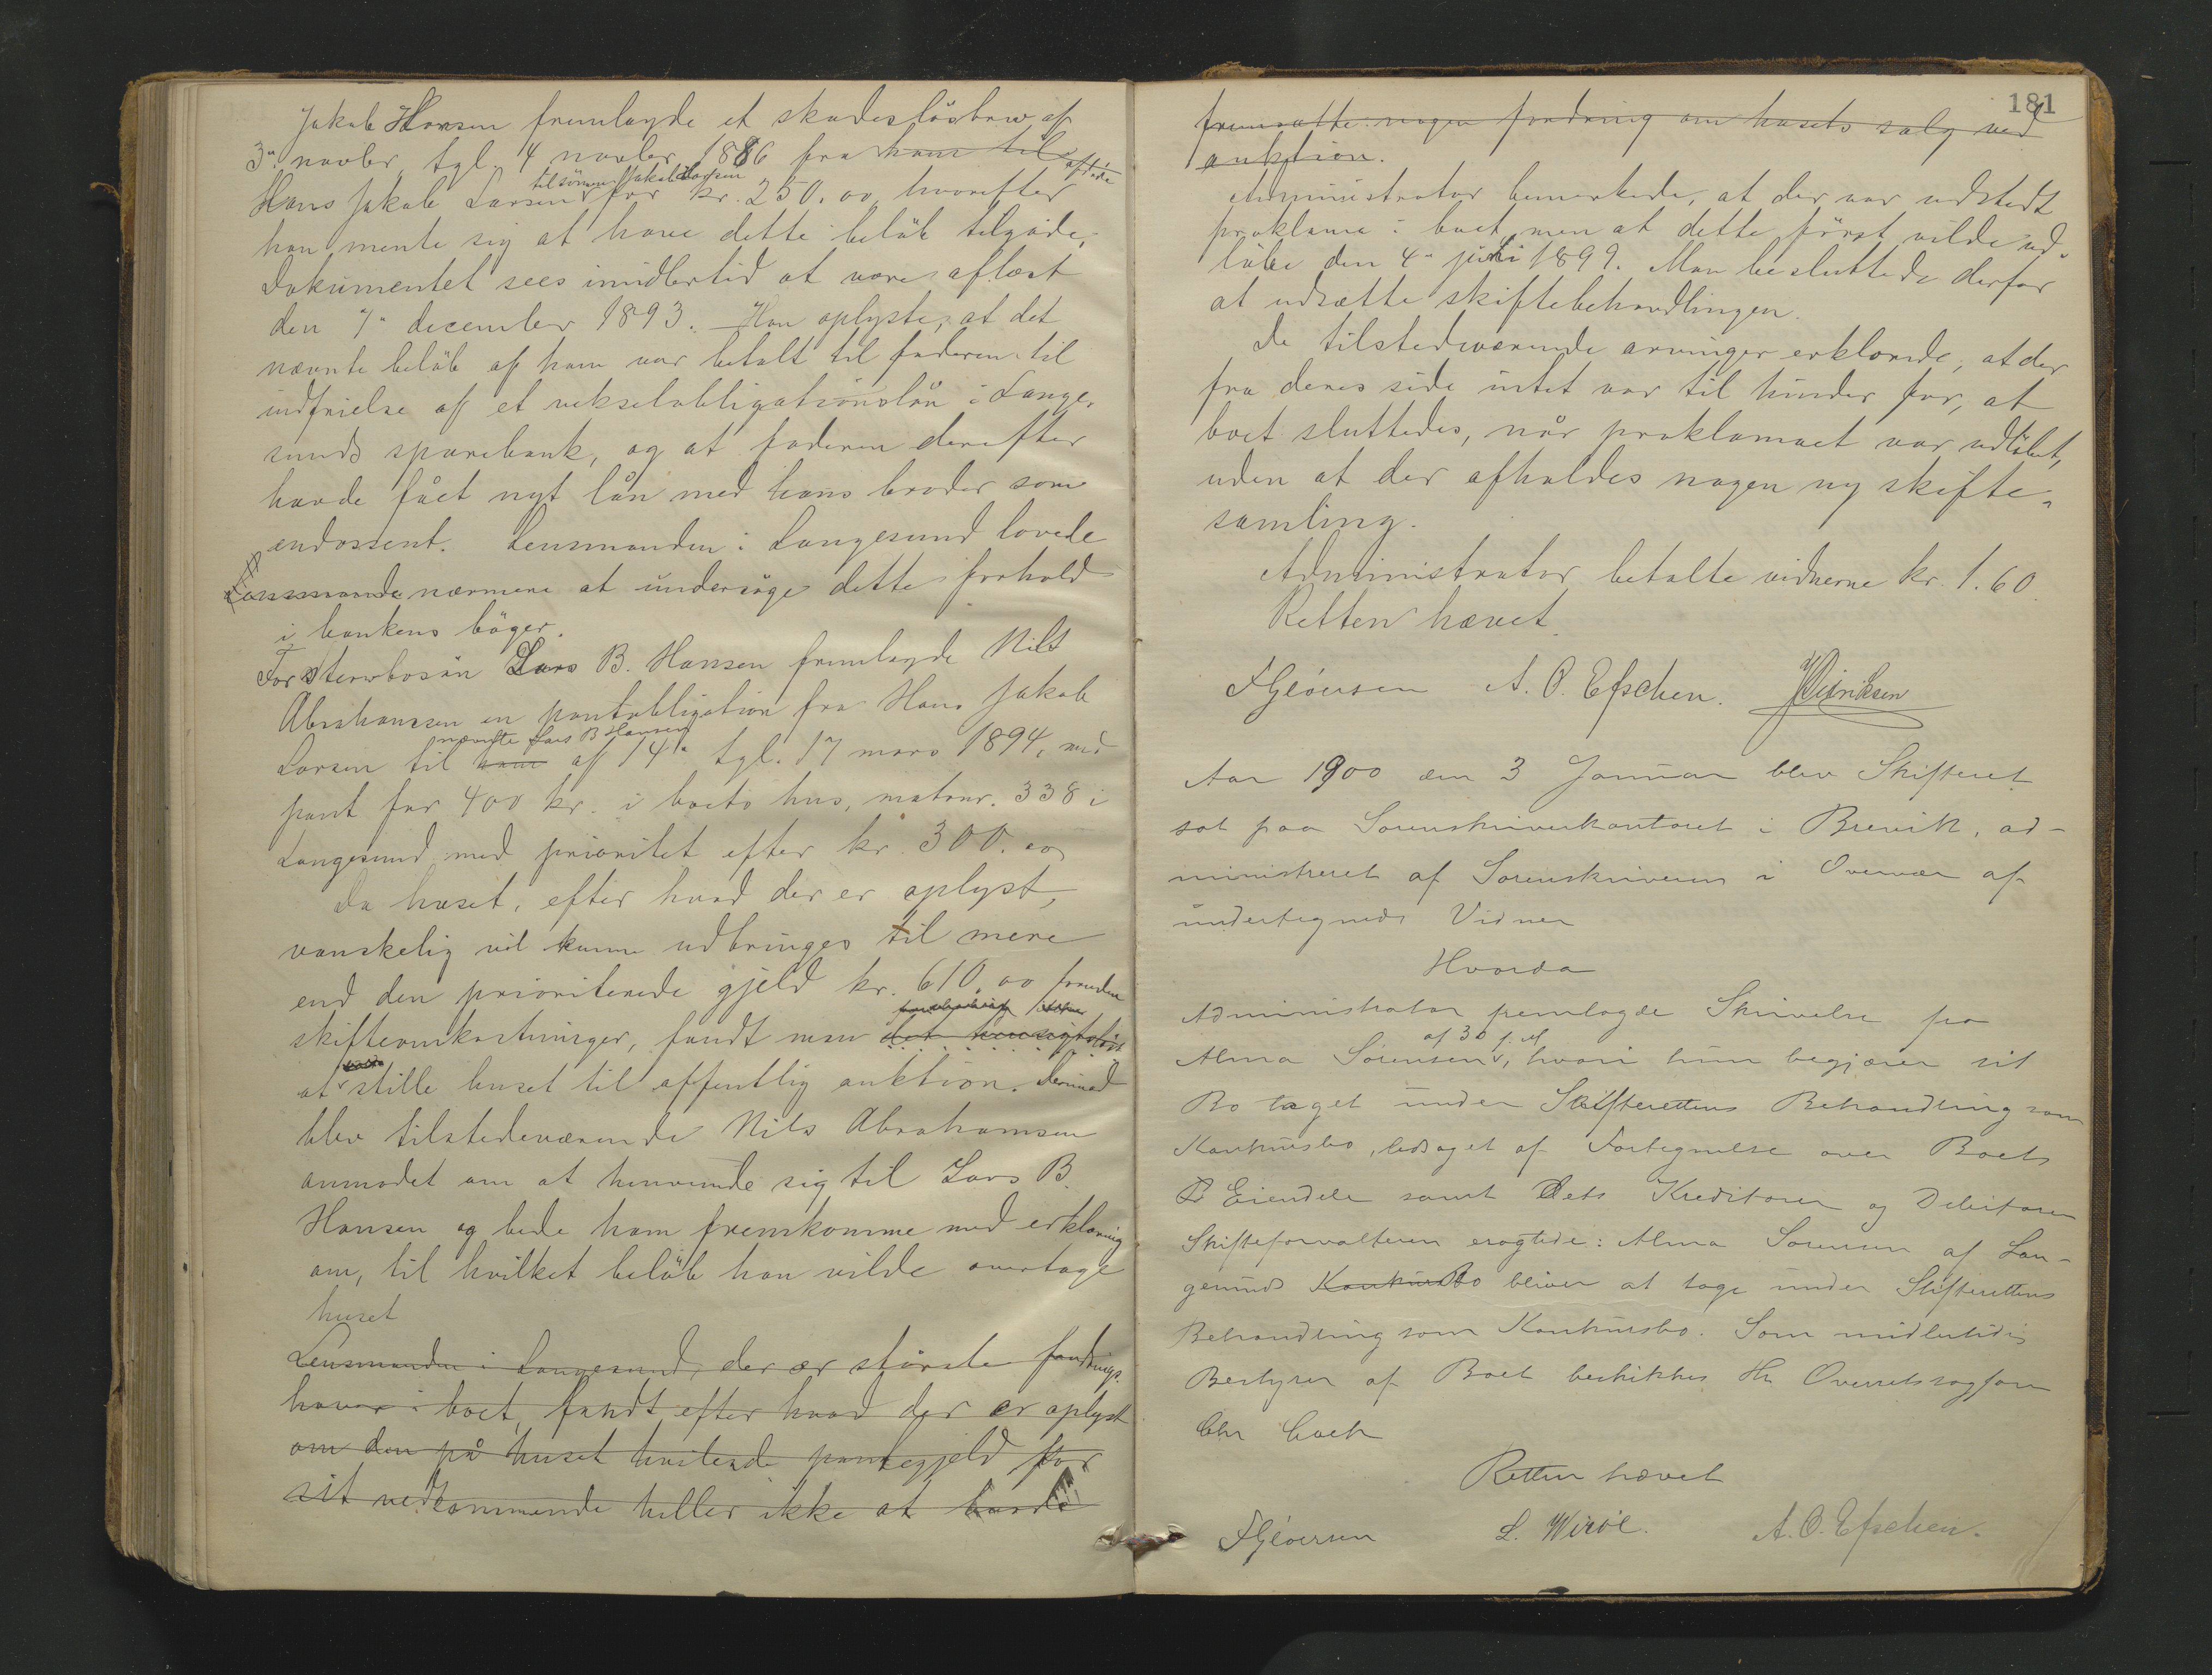 Jakob Hansen fremlagde et skadesløsbrev af
3. novbr. tgl. 4 novbr. 1886 fra ham til afdøde
til sønnen Jakob Hansen
Hans Jakob Larsen for kr. 250.00, hvorefter
han mente sig at have dette beløb tilgode.
Dokumentet sees imidlertid at være aflæst
den 7 december 1893. Han oplyste, at det
nævnte beløb af ham var betalt til faderen til
indfrielse af et vekselobligationslån i Lange-
sunds sparebank, og at faderen derefter
havde fået nyt lån med hans broder som
endossent. Lensmanden i Langesund lovede
nærmere at undersøge dette forhold
i bankens bøger.
For Stervbosøn Lars B. Hansen fremlagde Nils
Abrahamsen en pantobligation fra Hans Jakob
nævnte Lars B Hansen
Larsen til ham af 14 tgl. 17 mars 1894, med
pant for 400 kr. i boets hus, matrnr. 338 i
Langesund med prioritet efter kr. 300.00
Da huset, efter hvad der er oplyst,
vanskelig vil kunne udbringes til mere
end den prioriterede gjeld kr. 610.00 foruden
skifteomkostninger, fandt man det hensigtsløst
at stille huset til offentlig auktion. Derimod
blev tilstedeværende Nils Abrahamsen
anmodet om at henvende sig til Lars B.
Hansen og bede ham fremkomme med erklæring
om, til hvilket beløb han vilde overtage
huset
Lensmanden i Langesund, der er største fordrings-
haver i boet, fandt efter hvad der er oplyst
om den på huset hvilende pantegjeld for
sit vedkommende heller ikke at burde
181
fremsætte nogen fordring om husets salg ved
auktion.
Administrator bemerkede, at der var udstedt
proklama i boet, men at dette først vilde ud-
løbe den 4 juli 1899. Man besluttede derfor
at udsætte skiftebehandlingen.
De tilstedeværende arvinger erklærede, at der
fra deres side intet var til hinder for, at
boet sluttedes, når proklamaet var udløbet,
uden at der afholdes nogen ny skifte-
samling.
Administrator betalte vidnerne kr. 1.60.
Retten hævet.
A. O. Efschen.
Aar 1900 den 3 Januar blev Skifteret
sat paa Sorenskriverkontoret i Brevik, ad-
ministreret af Sorenskriveren i Overvær af
undertegnede Vidner
Hvorda
Administrator fremlagde Skrivelse fra
af 30 f. M
Alma Sørensen, hvori hun begjærer sit
Bo taget under Skifterettens Behandling som
Konkursbo, ledsaget af Fortegnelse over Boets
Eiendele samt dets Kreditorer og Debitorer
Skifteforvalteren eragtede: Alma Sørensen af Lan-
gesunds Konkursbo bliver at tage under Skifterettens
Behandling som Konkursbo. Som midlertidig
Bestyrer af Boet beskikkes Hr. Overretssagfører
Chr Coch
Retten hævet
A. O. Efschen.